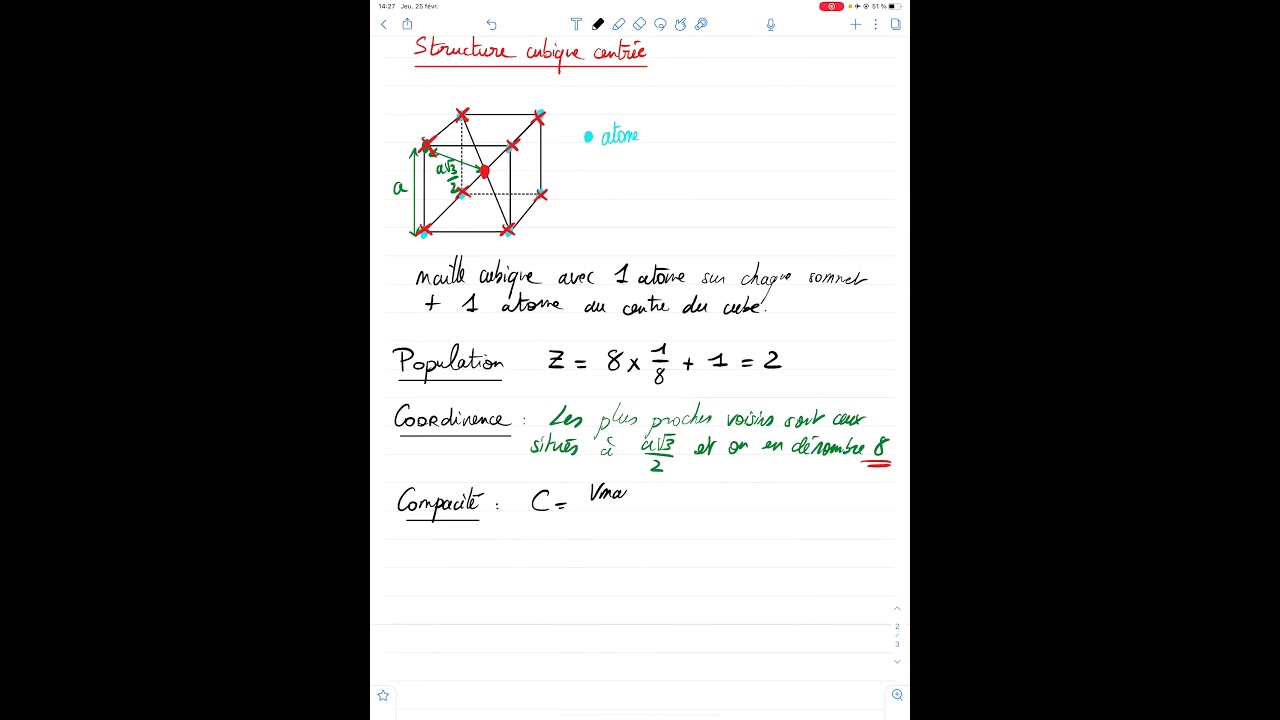 14:27 Jeu. 25 févr.
51 %
Structure cubique centrée
atome
a√3/2
a
maille cubique avec 1 atome sur chaque sommet
+ 1 atome au centre du cube.
Population Z = 8 x 1/8 + 1 = 2
Coordinence : Les plus proches voisins sont ceux
situés à a√3/2 et on en dénombre 8
Compacité : C = Vma
2
/
3